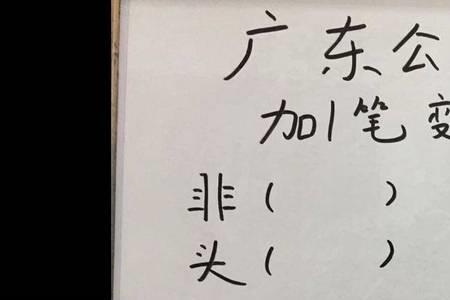 广东公
加1笔变
非(    )
头(    )